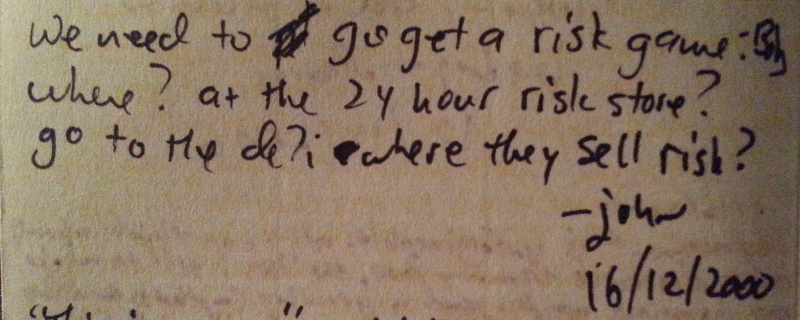 we need to go get a risk game:
where? at the 24 hour risk store?
go to the de?i where they sell risk?
-john
16/12/2000